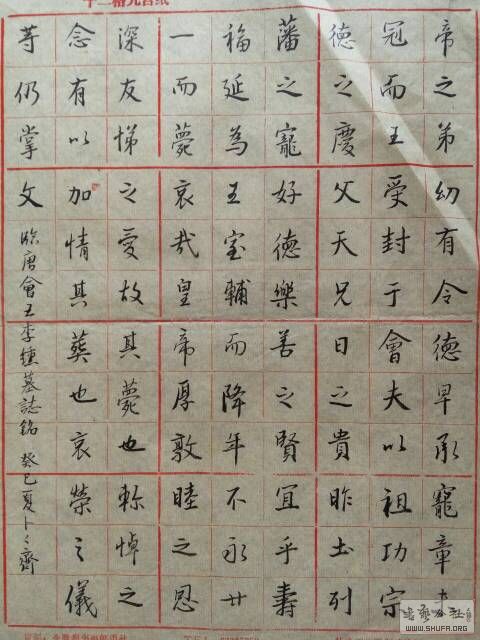 帝之弟幼有令德早承寵章
冠而王受封于會夫以祖功宗
德之慶父天兄日之貴昨土列
藩之寵好德樂善之賢宜乎壽
福延為王室輔而降年不永廿
一而薨哀哉皇帝厚敦睦之恩
深友悌之愛故其薨也軫悼之
念有以加情其葬也哀榮之儀
等仍掌文
臨唐會王李纁墓誌銘 癸巳夏卜卜齋
WWW.SHUFA.ORG